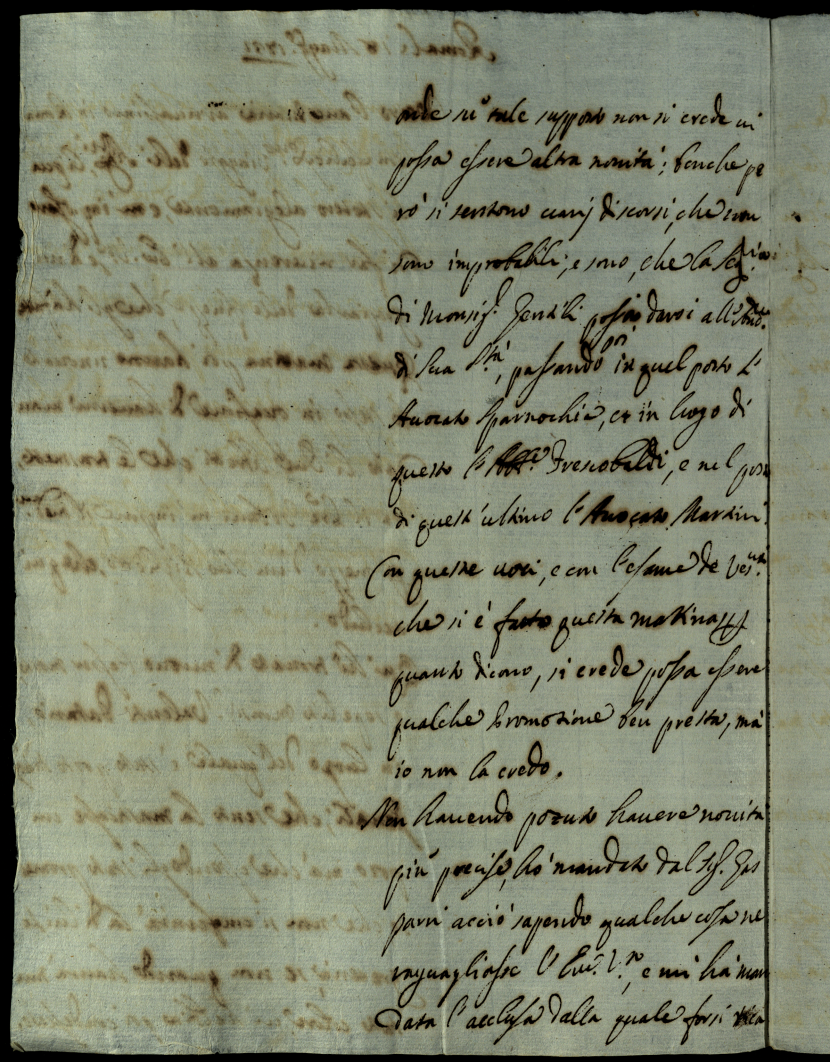 onde su tale supposto non si crede vi
possa essere altra novità; benche pe
rò si sentono varij discorsi, che non
sono improbabili, e sono, che la Seg.ria
di Monsig.r Gentili possa darsi all'
di Sua S.tà, passando poi in quel posto l'
Avocato Sparnochia, et in luogo di
questo l'Abb.e Frescobaldi, e nel posto
di quest'ultimo l'Avocato Martini.
Con queste voci, e con l'esame de Ves.vi
che si è fatto questa mattina
quanto dicono, si crede possa essere
qualche Promozione ben presta, mà
io non la credo.
Non havendo potuto havere novità
più precise, hò mandato dal Sig. Gas
parri acciò sapendo qualche cosa ne
raguagliasse l'Em.za V.ra, e mi hà man
data l'acclusa dalla quale forsi